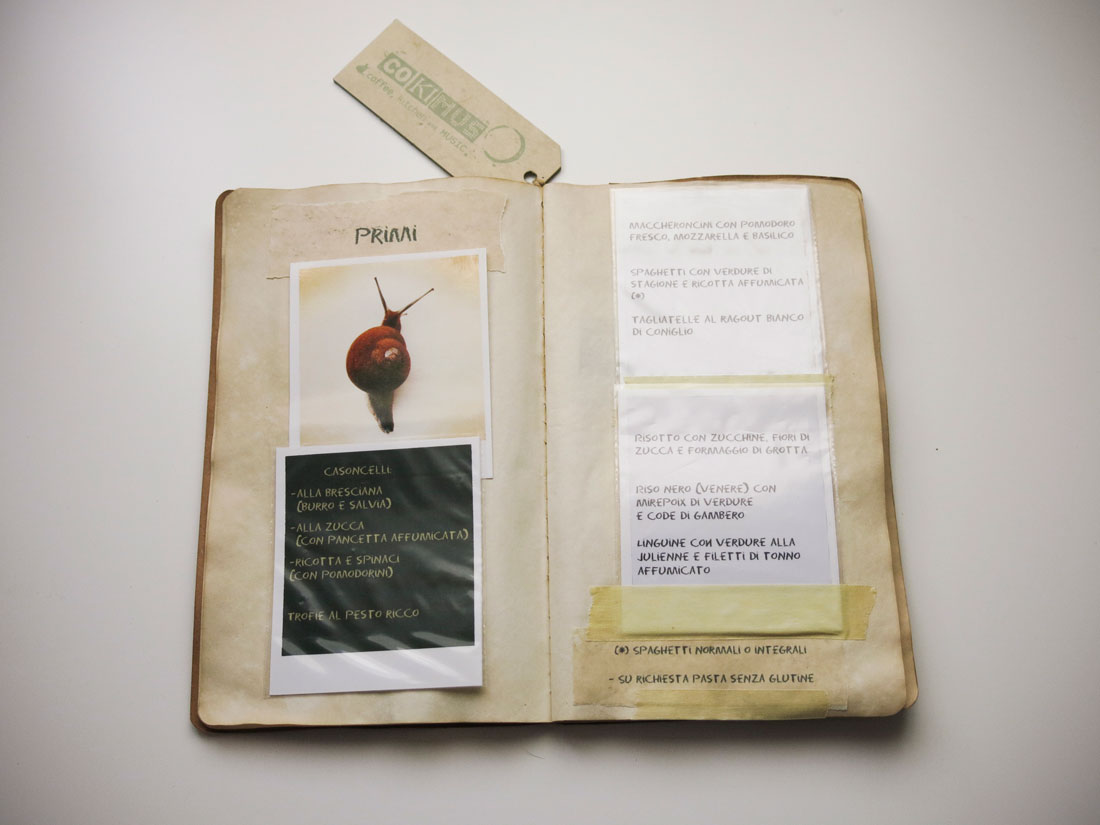 COKIMUS
coffee, kitchen and MUSIC.
PRIMI
CASONCELLI:
-ALLA BRESCIANA
(BURRO E SALVIA)
-ALLA ZUCCA
(CON PANCETTA AFFUMICATA)
-RICOTTA E SPINACI
(CON POMODORINI)
TROFIE AL PESTO RICCO
MACCHERONCINI CON POMODORO
FRESCO, MOZZARELLA E BASILICO
SPAGHETTI CON VERDURE DI
STAGIONE E RICOTTA AFFUMICATA
(*)
TAGLIATELLE AL RAGOUT BIANCO
DI CONIGLIO
RISOTTO CON ZUCCHINE, FIORI DI
ZUCCA E FORMAGGIO DI GROTTA
RISO NERO (VENERE) CON
MIREPOIX DI VERDURE
E CODE DI GAMBERO
LINGUINE CON VERDURE ALLA
JULIENNE E FILETTI DI TONNO
AFFUMICATO
(*) SPAGHETTI NORMALI O INTEGRALI
- SU RICHIESTA PASTA SENZA GLUTINE